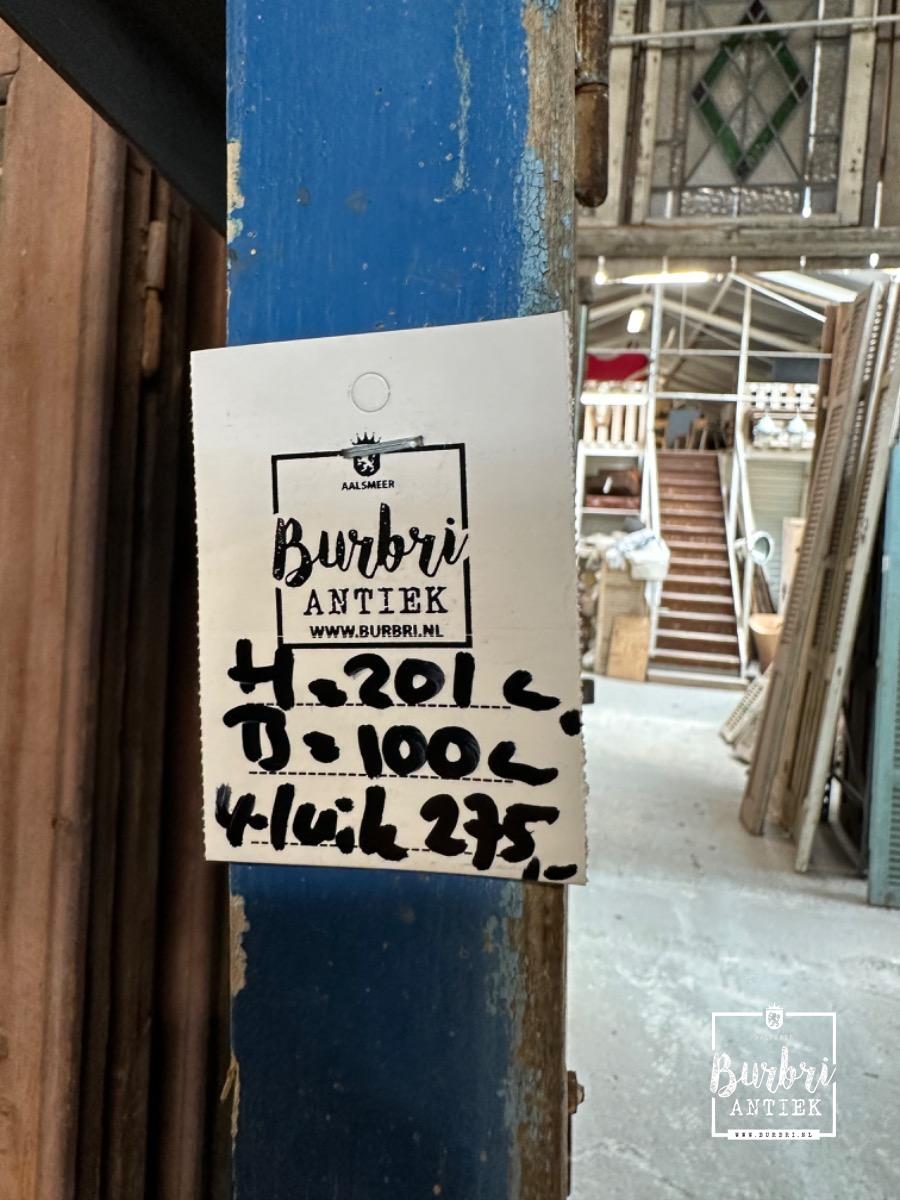 AALSMEER
Burbri
ANTIEK
WWW.BURBRI.NL
H. 201 c.
B. 100 c
4 luik 275,-
Burbri
ANTIEK
WWW.BURBRI.NL